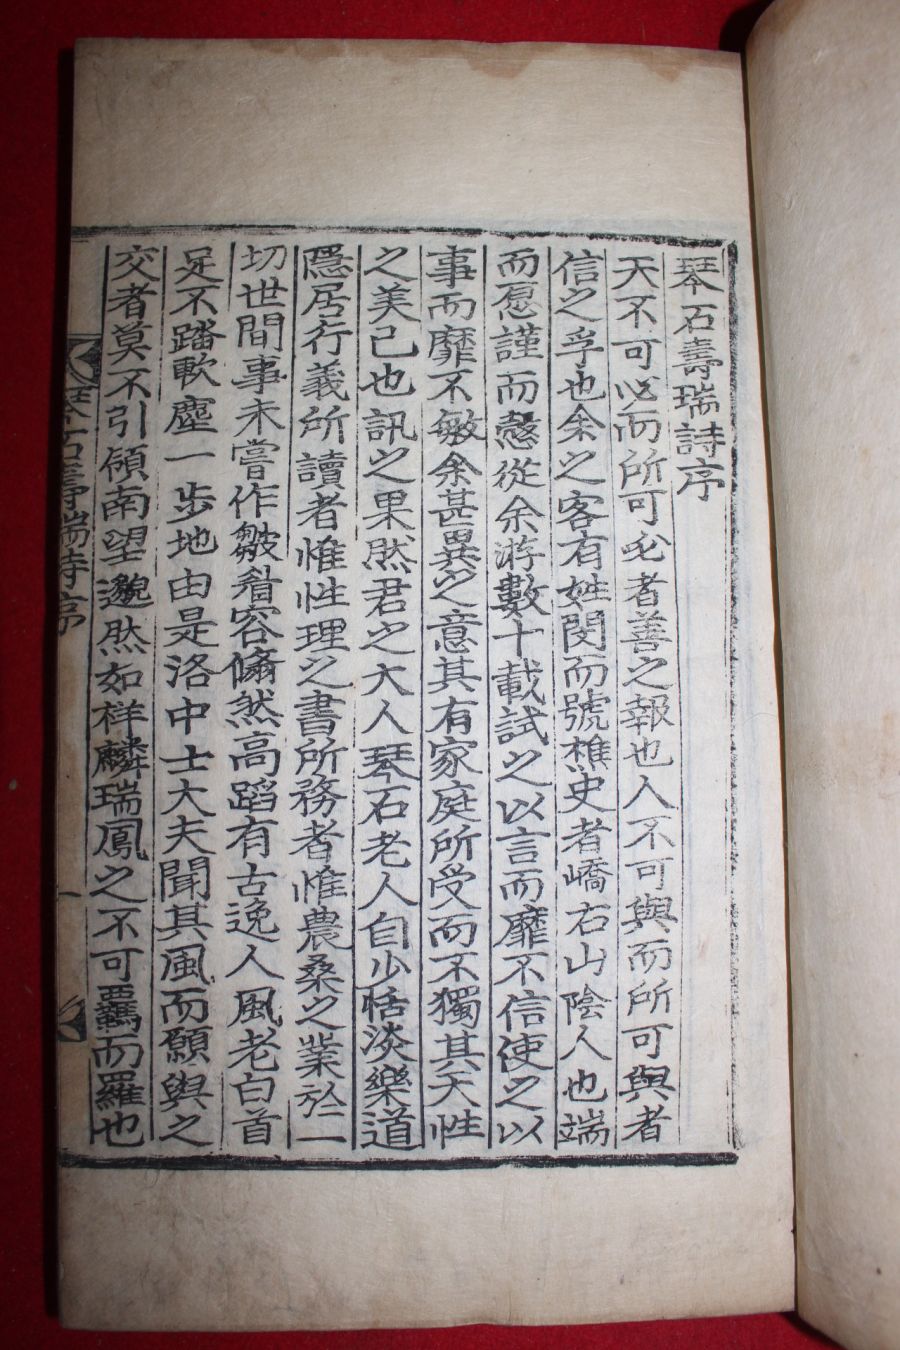 琴石壽瑞詩序
天不可必而所可必者善之報也人不可與而所可與者
信之孚也余之客有姓閔而號樵史者嶠右山陰人也端
而愿謹而慤從余游數十載試之以言而靡不信使之以
事而靡不敏余甚異之意其有家庭所受而不獨其天性
之美已也訊之果然君之大人琴石老人自少恬淡樂道
隱居行義所讀者惟性理之書所務者惟農桑之業於一
切世間事未嘗作皺眉容翛然高蹈有古逸人風老白首
足不踏軟塵一步地由是洛中士大夫聞其風而願與之
交者莫不引領南望邈然如祥麟瑞鳳之不可羈而羅也
琴石壽瑞詩序
一